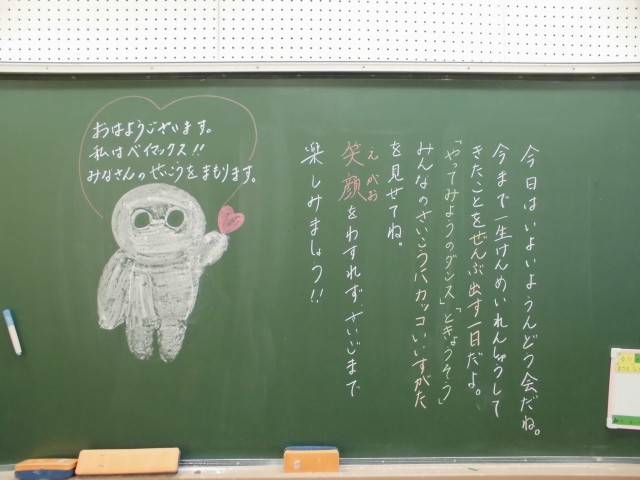 おはようございます。
私はベイマックス!!
みなさんのせいこうをまもります。
今日はいよいようんどう会だね。
今まで一生けんめいれんしゅうして
きたことをぜんぶ出す一日だよ。
「やってみようのダンス」「ときょうそう」
みんなのさいこうにカッコいいすがた
を見せてね。
笑顔をわすれず、さいごまで
えがお
楽しみましょう!!